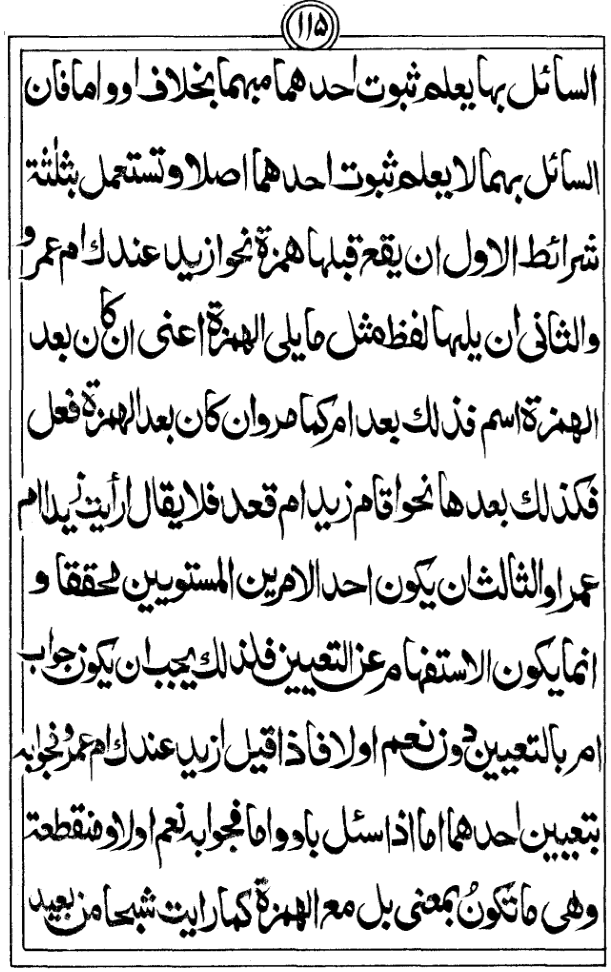 ١١٥
السائل بها يعلم ثبوت احدهما مبهما بخلاف او واما فان
السائل بهما لا يعلم ثبوت احدهما اصلا وتستعمل بثلٰثة
شرائط الاول ان يقع قبلها همزة نحو ازيد عندك ام عمرو
والثانى ان يليها لفظ مثل ما يلى الهمزة اعنى ان كان بعد
الهمزة اسم فذلك بعد ام كما مر وان كان بعد الهمزة فعل
فكذلك بعدها نحو اقام زيد ام قعد فلا يقال ارأيت زيدا ام
عمرا والثالث ان يكون احد الامرين المستويين محققا و
انما يكون الاستفهام عن التعيين فلذلك يجب ان يكون جواب
ام بالتعيين دون نعم او لا فاذا قيل ازيد عندك ام عمرو فجوابه
بتعيين احدهما اما اذا سئل باو واما فجوابه نعم او لا ومنقطعة
وهى ما تكونُ بمعنى بل مع الهمزة كما رايت شبحا من بعيد